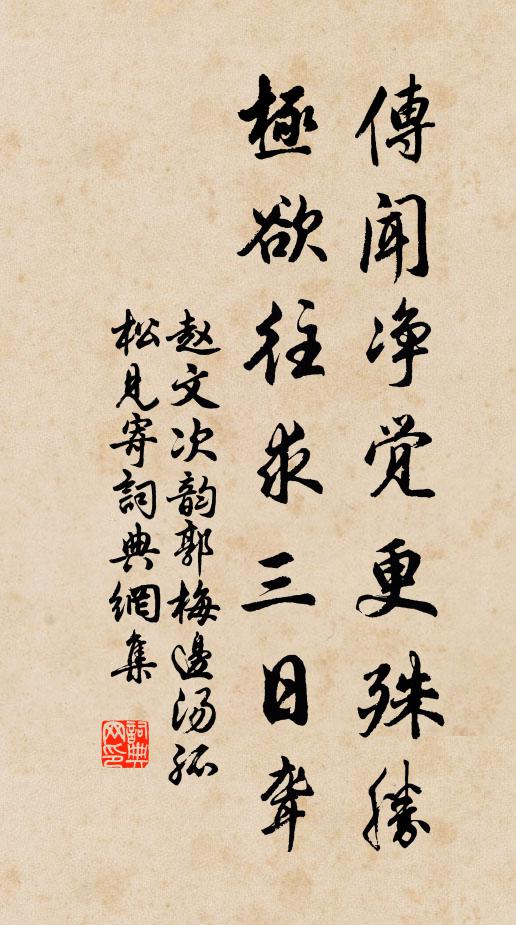 傳聞净觉更殊勝
極欲往求三日聾
赵文次韵郭梅邊汤孤
松見寄詞典網集
詞典
网印